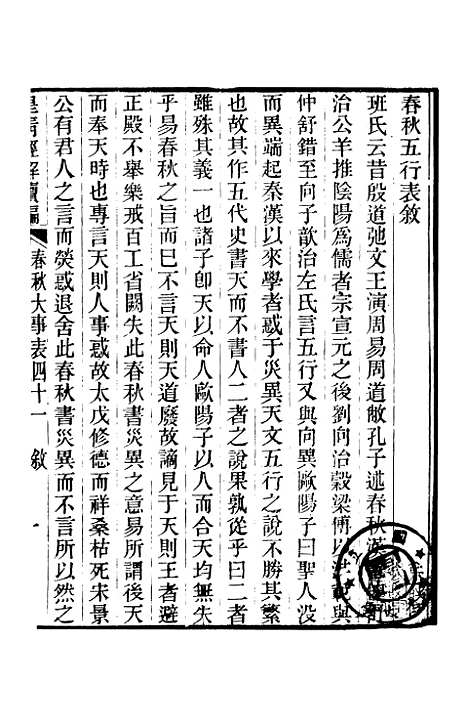 春秋五行表敘
班氏云昔殷道弛文王演周易周道敝孔子述春秋
治公羊推陰陽爲儒者宗宣元之後劉向治榖梁傅以
仲舒錯至向子歆治左氏言五行又與向異歐陽子曰聖人没
而異端起秦漢以來學者惑于災異天文五行之說不勝其繁
也故其作五代史書天而不書人二者之說果孰從乎曰二者
雖殊其義一也諸子卽天以命人歐陽子以人而合天均無失
乎易春秋之旨而已不言天則天道廢故謫見于天則王者避
正殿不舉樂戒百工省闕失此春秋書災異之意易所謂後天
而奉天時也專言天則人事惑故太戊修德而祥桑枯死宋景
公有君人之言而熒惑退舍此春秋書災異而不言所以然之
皇淸經解續編
春秋大事表四十一
敘
一